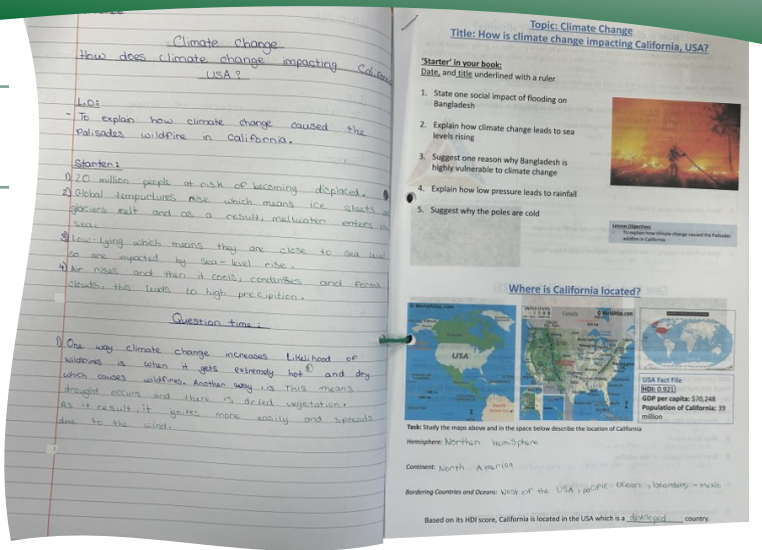 Climate Change
How does climate change impacting
USA?
L.O:
- To explain how climate change caused the
Palisades wildfire in California.
Starter:
1) 20 million people at risk of becoming displaced.
2) Global tempurtures rise which means ice sheets
glaciers melt and as a result, meltwater enters
sea.
3) Low-lying which means they are close to sea
so are impacted by sea-level rise.
4) Air rises and then it cools, condenses and forms
clouds, this leads to high precipition.
Question time:
1) One way climate change increases likelihood of
wildfires is when it gets extremely hot and dry
which causes wildfires. Another way is this means
drought occurs and there is dried vegetation.
As a result, it ignites more easily and spreads
due to the wind.
Topic: Climate Change
Title: How is climate change impacting California, USA?
'Starter' in your book:
Date, and title underlined with a ruler
1. State one social impact of flooding on
Bangladesh
2. Explain how climate change leads to sea
levels rising
3. Suggest one reason why Bangladesh is
highly vulnerable to climate change
4. Explain how low pressure leads to rainfall
5. Suggest why the poles are cold
Lesson Objectives
To explain how climate change caused the Palisades
wildfire in California
Where is California located?
© WorldAtlas.com
USA
Canada
© WorldAtlas.com
USA Fact File
HDI: 0.921
GDP per capita: $70,248
Population of California: 39
million
Task: Study the maps above and in the space below describe the location of California
Hemisphere: Northen Hemisphere
Continent: North America
Bordering Countries and Oceans: West of the USA, pacific ocean,
Based on its HDI score, California is located in the USA which is a developed country.